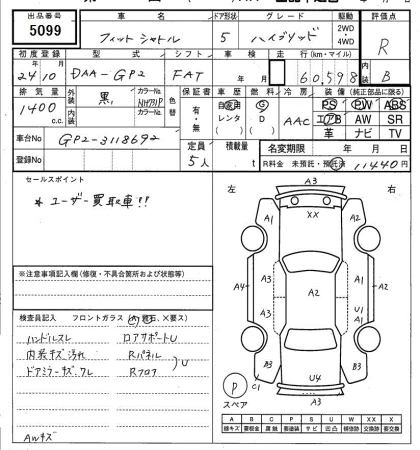 出品番号 車名 ドア形状 グレード 駆動 評価点
5099 フィット シャトル 5 ハイブリッド 2WD・4WD R
初度登録 型式 シフト 車検 走行(km・マイル) 内装
24年10月 DAA-GP2 FAT 年 月 60,598 B
排気量 外装 カラーNo. 色替 保証書 車歴 燃料 冷房 装備(純正部品に限る)
1400 c.c. 黒 NH731P 有・無 自家用 レンタ G D AAC PS PW ABS
内装 カラーNo. エアB AW SR
革 ナビ TV
車台No GP2-3118692 定員 5人 積載量 t 名変期限 年 月 日
登録No R料金 未預託・預託済 11440円
セールスポイント
* ユーザー買取車!!
左 右
A3
XX
A1 A2
A4 A3 A3 A2 U1 A1
B3 C1 U4 A3 B3
P
スペア
※注意事項記入欄(修復・不具合箇所および状態等)
検査員記入 フロントガラス 要ス)
ハンドルスレ ロアサポートU
内装キズ汚れ Rパネル
ドアミラーキズ、ワレ Rフロア )U
AWキズ
A B C P S U W X XX
線キズ 腐蝕 要塗装 サビ 凹凸 補修跡 要交換 交換済